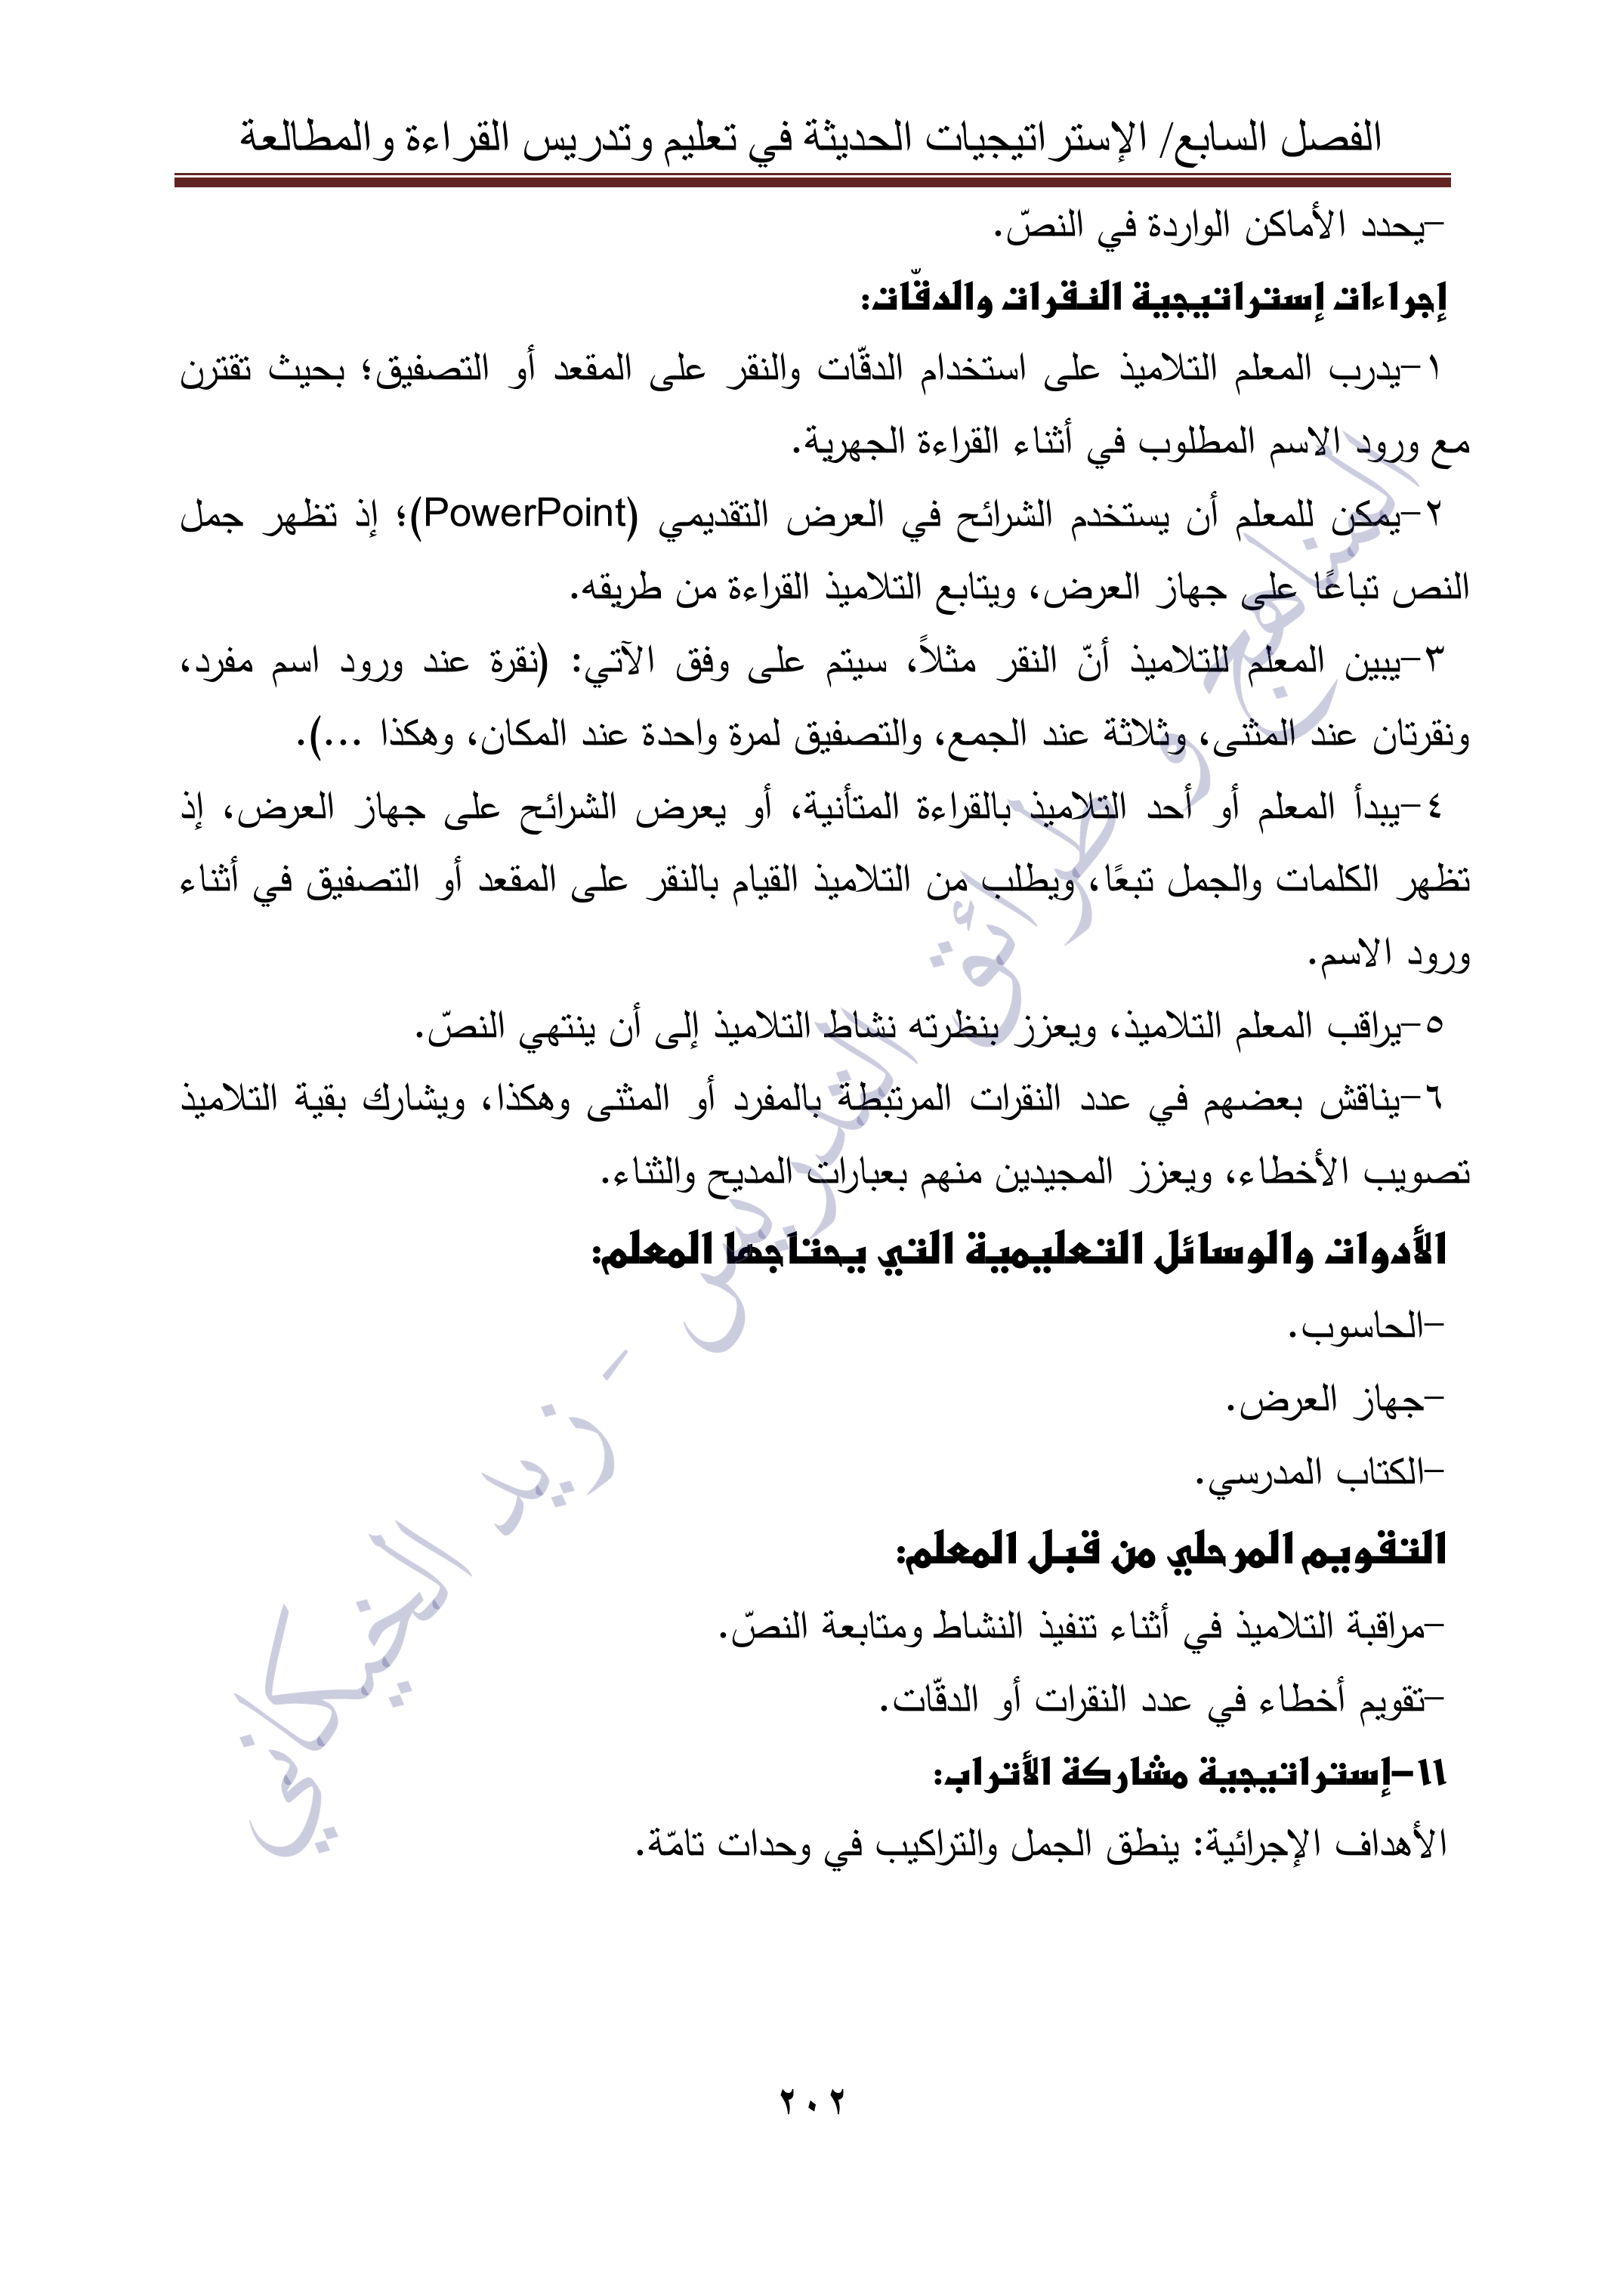 الفصل السابع/ الإستراتيجيات الحديثة في تعليم وتدريس القراءة والمطالعة
-يحدد الأماكن الواردة في النصّ.
إجراءات إستراتيجية النقرات والدقّات:
١-يدرب المعلم التلاميذ على استخدام الدقّات والنقر على المقعد أو التصفيق؛ بحيث تقترن
مع ورود الاسم المطلوب في أثناء القراءة الجهرية.
٢-يمكن للمعلم أن يستخدم الشرائح في العرض التقديمي (PowerPoint)؛ إذ تظهر جمل
النص تباعًا على جهاز العرض، ويتابع التلاميذ القراءة من طريقه.
٣-يبين المعلم للتلاميذ أنّ النقر مثلاً، سيتم على وفق الآتي: (نقرة عند ورود اسم مفرد،
ونقرتان عند المثنى، وثلاثة عند الجمع، والتصفيق لمرة واحدة عند المكان، وهكذا ...).
٤-يبدأ المعلم أو أحد التلاميذ بالقراءة المتأنية، أو يعرض الشرائح على جهاز العرض، إذ
تظهر الكلمات والجمل تبعًا، ويطلب من التلاميذ القيام بالنقر على المقعد أو التصفيق في أثناء
ورود الاسم.
٥-يراقب المعلم التلاميذ، ويعزز بنظرته نشاط التلاميذ إلى أن ينتهي النصّ.
٦-يناقش بعضهم في عدد النقرات المرتبطة بالمفرد أو المثنى وهكذا، ويشارك بقية التلاميذ
تصويب الأخطاء، ويعزز المجيدين منهم بعبارات المديح والثناء.
الأدوات والوسائل التعليمية التي يحتاجها المعلم:
-الحاسوب.
-جهاز العرض.
-الكتاب المدرسي.
التقويم المرحلي من قبل المعلم:
-مراقبة التلاميذ في أثناء تنفيذ النشاط ومتابعة النصّ.
-تقويم أخطاء في عدد النقرات أو الدقّات.
١١-إستراتيجية مشاركة الأتراب:
الأهداف الإجرائية: ينطق الجمل والتراكيب في وحدات تامّة.
المناهج و طرائق التدريس - زيد الخيكاني
٢٠٢